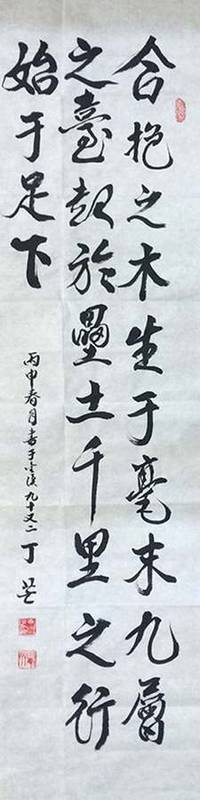 合抱之木生于毫末九層
之臺起於壘土千里之行
始于足下
丙申春月書于金陵九十又二丁芒